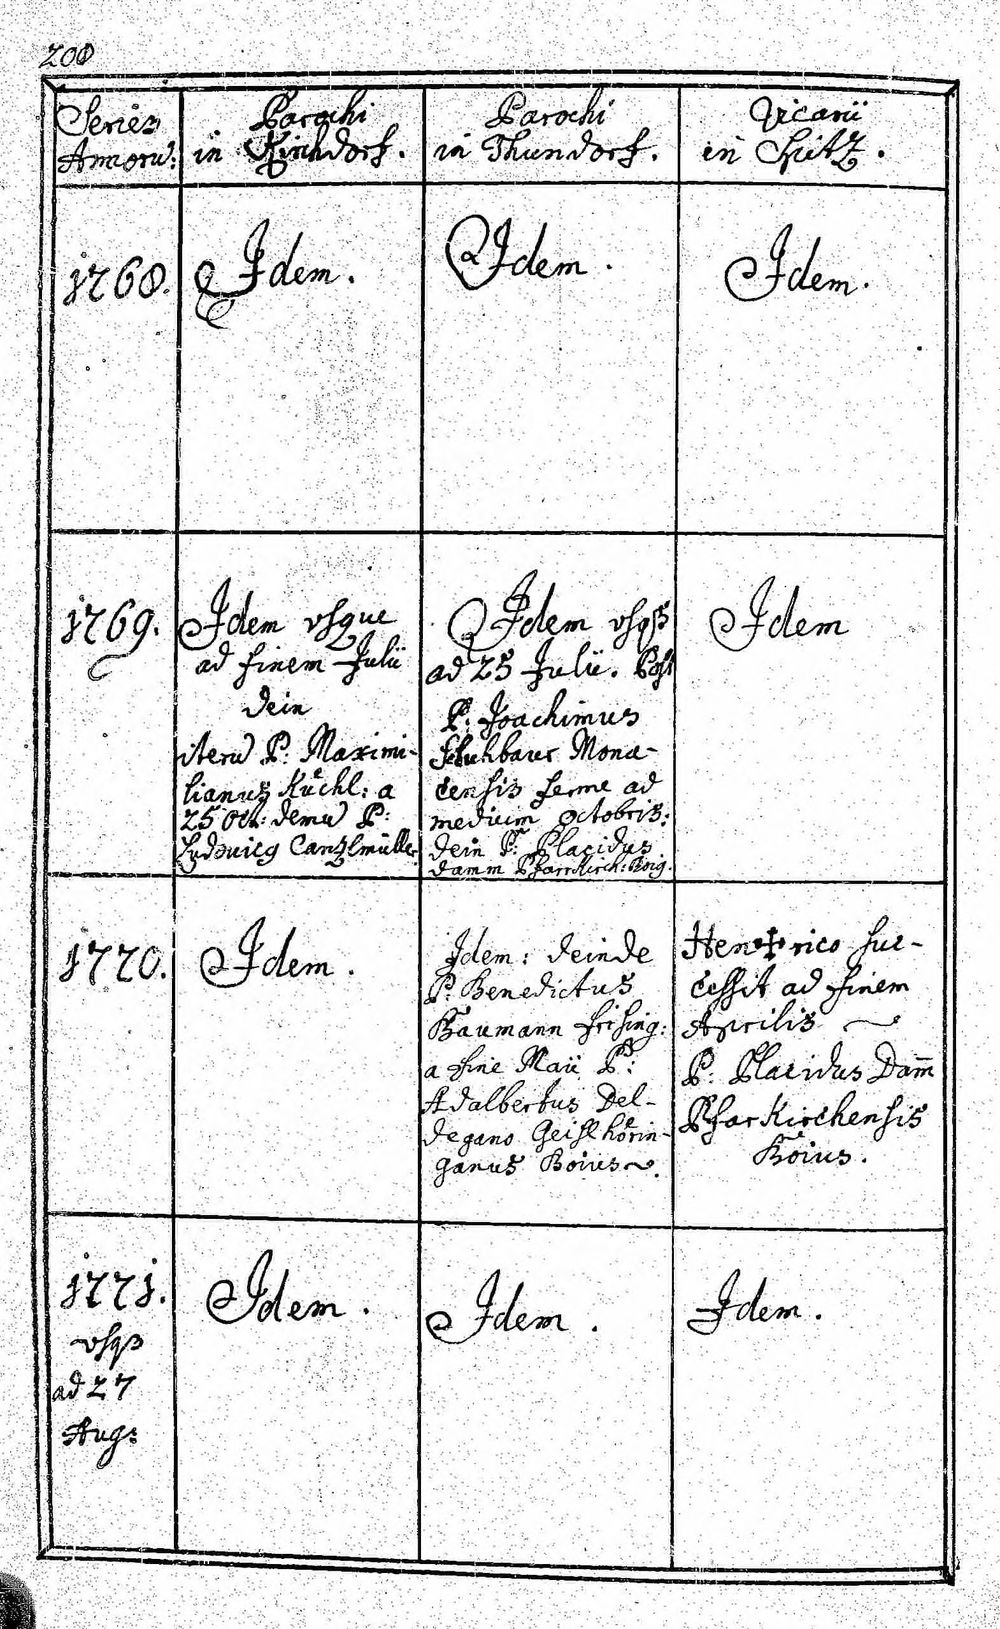 200
Series
Annorū:
Parochi
in Kirchdorf.
Parochi
in Thundorf.
Vicarii
in Spitz.
1760.
Idem.
Idem.
Idem.
1769.
Idem vsque
ad finem Julii
dein
iterū P: Maximi-
lianus Kuchl: a
25 Oct: demū P:
Ludouicg Cantzlmüller
Idem vsqȝ
ad 25 Julii. Post
P: Joachimus
Mona-
censis ferme ad
medium Octobris:
dein P: Placidus
Damm Pfarrkirch:
Idem
1770.
Idem.
Idem: deinde
P: Benedictus
Baumann frising:
a fine Maii P:
Adalbertus Del-
degano Geislhörin-
ganus Boius.
Hen✝rico suc-
cessit ad finem
Aprilis
P: Placidus Dam̄
Pfarkirchensis
Boius.
1771.
vsqȝ
ad 27
Aug:
Idem.
Idem.
Idem.